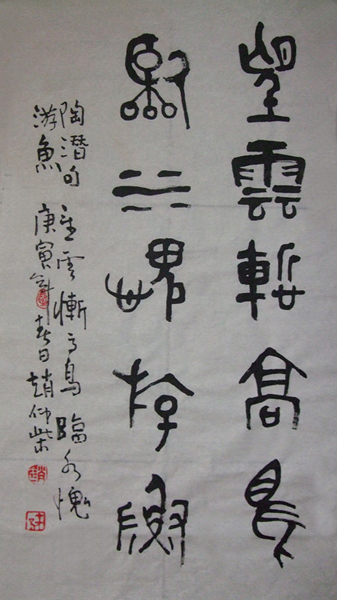 望雲慚高鳥
臨水愧游魚
陶潛句 望雲慚高鳥臨水愧
游魚 庚寅年春日趙仲柴